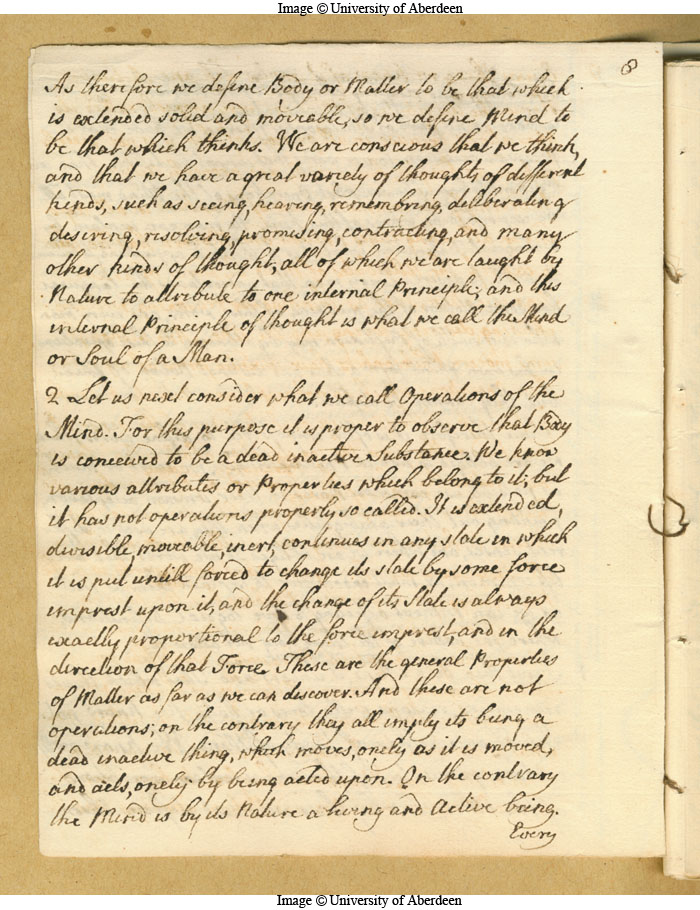 Image © University of Aberdeen
8
As therefore we define Body or Matter to be that which
is extended solid and moveable, so we define Mind to
be that which thinks. We are conscious that we think,
and that we have a great variety of thoughts of different
kinds, such as seeing, hearing, remembring, deliberating
desiring, resolving, promising, contracting, and many
other kinds of thought, all of which we are taught by
Nature to attribute to one internal Principle; and this
internal Principle of thought is what we call the Mind
or Soul of a Man.
2 Let us next consider what we call Operations of the
Mind. For this purpose it is proper to observe that Body
is conceived to be a dead inactive Substance. We know
various attributes or Properties which belong to it; but
it has not operations properly so called. It is extended,
divisible, moveable, inert, continues in any state in which
it is put untill forced to change its state by some force
imprest upon it, and the change of its State is always
exactly proportional to the force imprest, and in the
direction of that Force. These are the general Properties
of Matter as far as we can discover. And these are not
operations; on the contrary they all imply its being a
dead inactive thing, which moves, onely as it is moved,
and acts, onely by being acted upon. On the contrary
the Mind is by its Nature a living and Active being.
Every
Image © University of Aberdeen